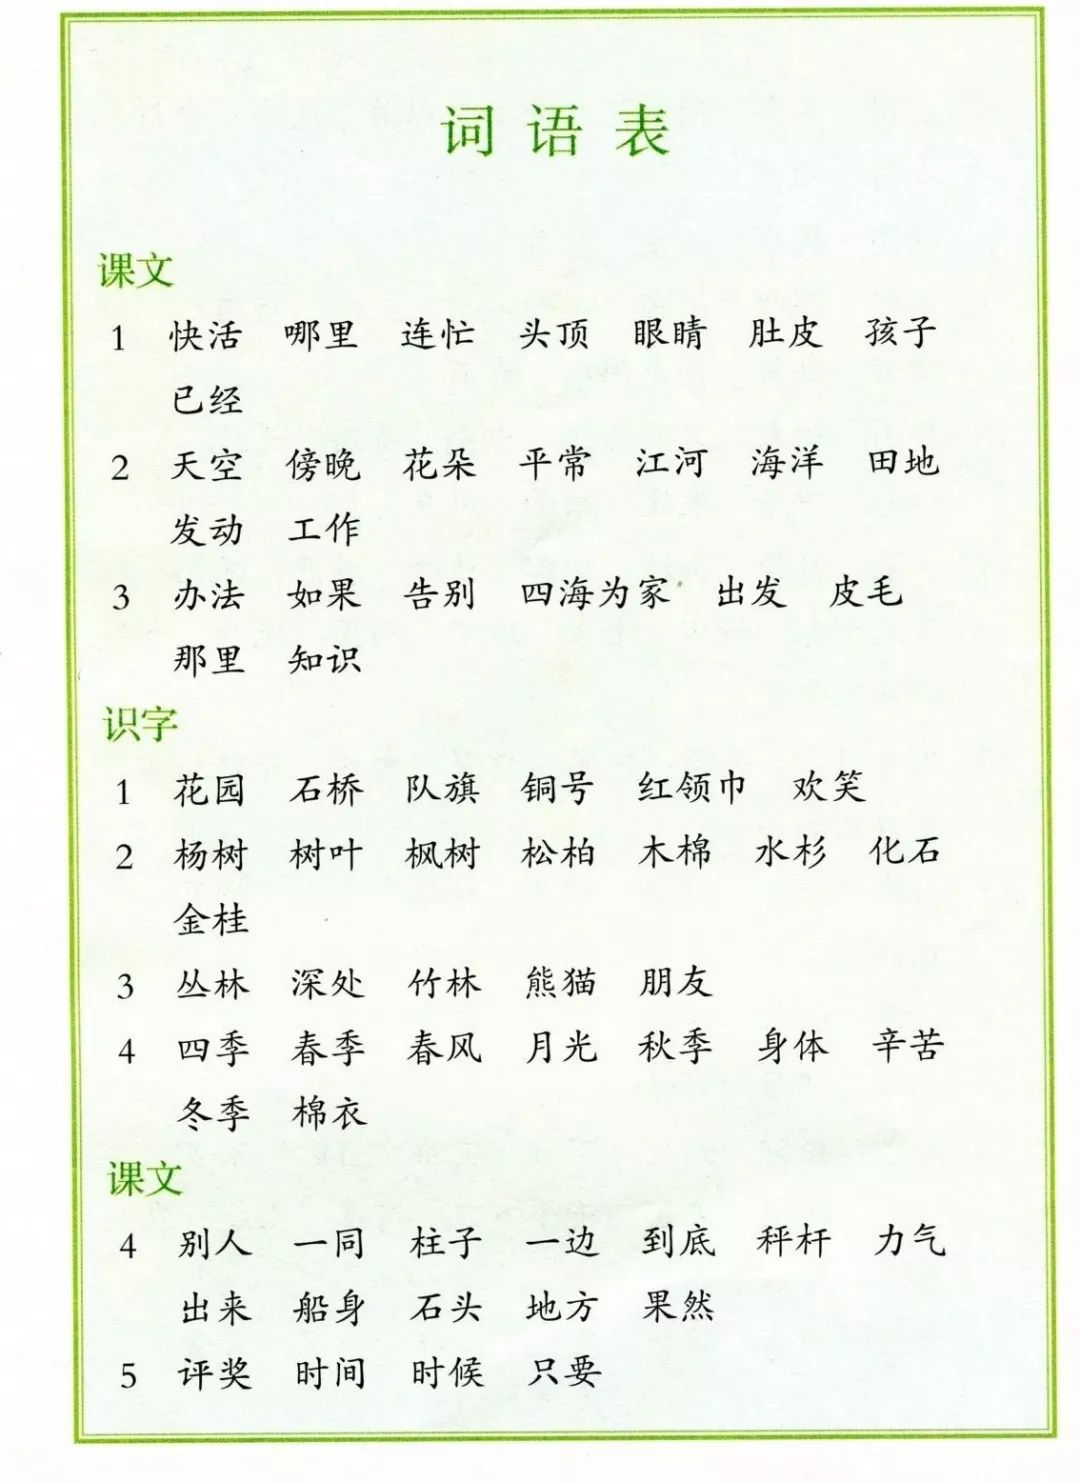 词语表
课文
1 快活 哪里 连忙 头顶 眼睛 肚皮 孩子
已经
2 天空 傍晚 花朵 平常 江河 海洋 田地
发动 工作
3 办法 如果 告别 四海为家 出发 皮毛
那里 知识
识字
1 花园 石桥 队旗 铜号 红领巾 欢笑
2 杨树 树叶 枫树 松柏 木棉 水杉 化石
金桂
3 丛林 深处 竹林 熊猫 朋友
4 四季 春季 春风 月光 秋季 身体 辛苦
冬季 棉衣
课文
4 别人 一同 柱子 一边 到底 秤杆 力气
出来 船身 石头 地方 果然
5 评奖 时间 时候 只要